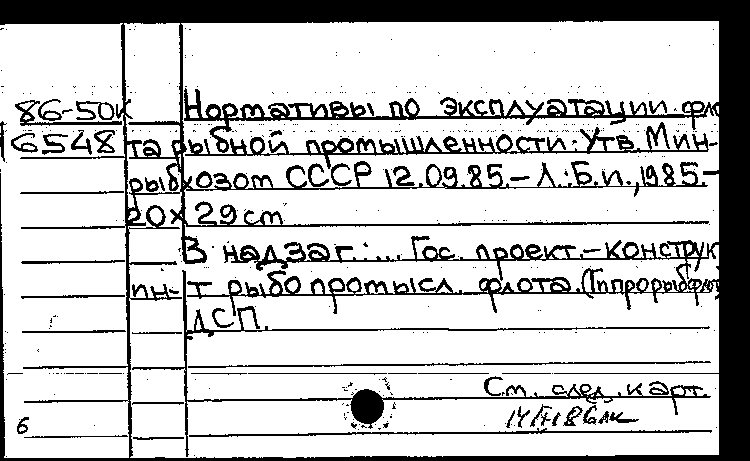 86-50к Нормативы по эксплуатации фло
6548 та рыбной промышленности: Утв. Мин-
рыбхозом СССР 12.09.85.- Л.: Б.и., 1985.-
20×29 cm
В надзаг.: ... Гос. проект.-конструк
ин-т рыбопромысл. флота. (Гипрорыбфло
ДСП.
См. след. карт.
6